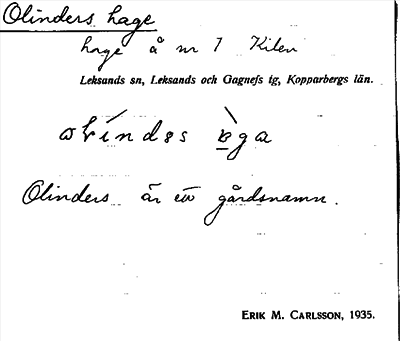 Olinders hage
hage å nr 1 Kilen
Leksands sn, Leksands och Gagnefs tg, Kopparbergs län.
Olinders är ett gårdsnamn.
ERIK M. CARLSSON, 1935.